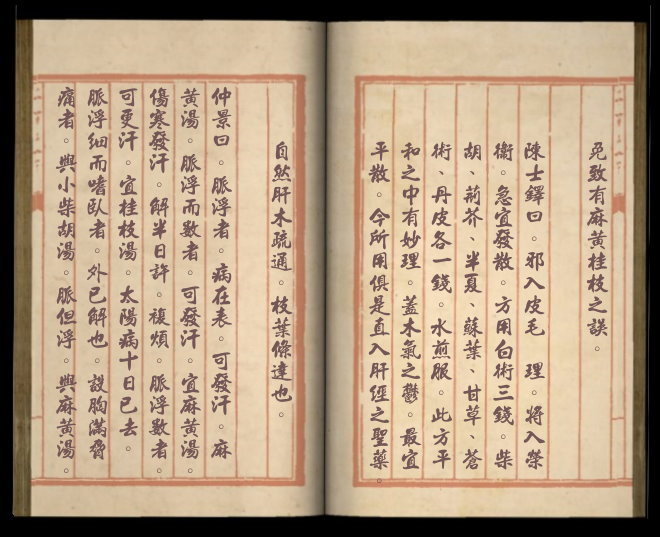 免致有麻黃桂枝之誤。
陳士鐸曰。邪入皮毛　理。將入榮
衞。急宜發散。方用白術三錢。柴
胡、荊芥、半夏、蘇葉、甘草、蒼
術、丹皮各一錢。水煎服。此方平
和之中有妙理。蓋木氣之鬱。最宜
平散。今所用俱是直入肝經之聖藥。
自然肝木疏通。枝葉條達也。
仲景曰。脈浮者。病在表。可發汗。麻
黃湯。脈浮而數者。可發汗。宜麻黃湯。
傷寒發汗。解半日許。複煩。脈浮數者。
可更汗。宜桂枝湯。太陽病十日已去。
脈浮細而嗜臥者。外已解也。設胸滿脅
痛者。與小柴胡湯。脈但浮。與麻黃湯。